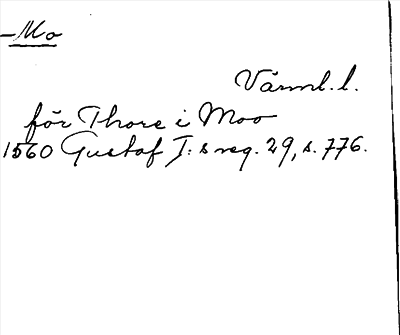 -Mo
Värml. l.
för Thore i Moo
1560 Gustaf I:s reg. 29, s. 776.